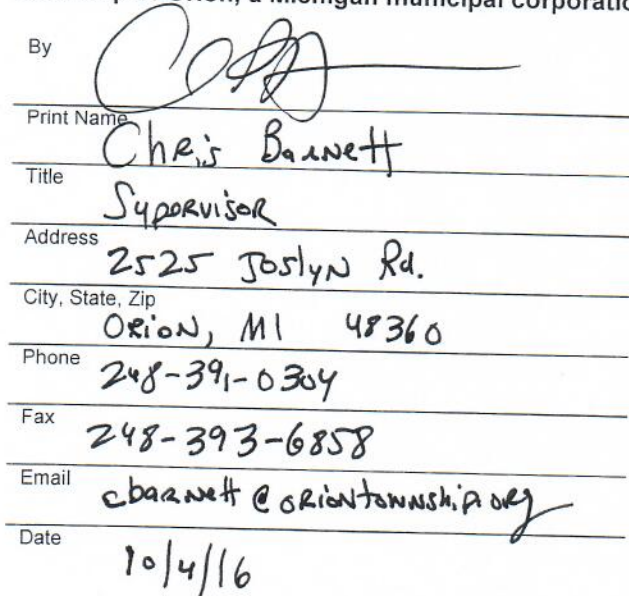 a Michigan municipal corporatio
By
Print Name
Chris Barnett
Title
Supervisor
Address
2525 Joslyn Rd.
City, State, Zip
Orion, MI 48360
Phone
248-391-0304
Fax
248-393-6858
Email
cbarnett@oriontownship.org
Date
10/4/16